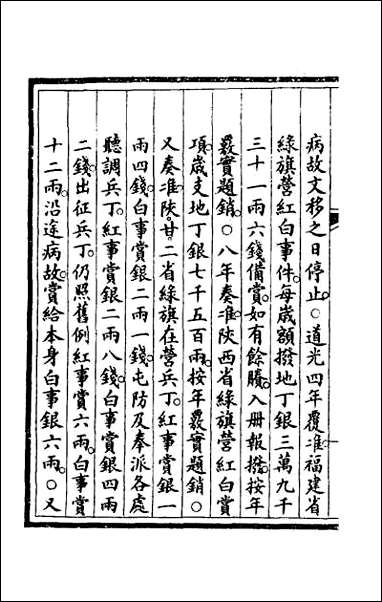 病故文移之日停止○道光四年覆准福建省
綠旗營紅白事件每歲額撥地丁銀三萬九千
三十一兩六錢備賞如有餘賸入冊報撥按年
覈實題銷○八年奏准陝西省綠旗營紅白賞
項歲支地丁銀七千五百兩按年覈實題銷○
又奏准陝甘二省綠旗在營兵丁紅事賞銀一
兩四錢白事賞銀二兩一錢屯防及奉派各處
聽調兵丁紅事賞銀二兩八錢白事賞銀四兩
二錢出征兵丁仍照舊例紅事賞六兩白事賞
十二兩沿途病故賞給本身白事銀六兩○又